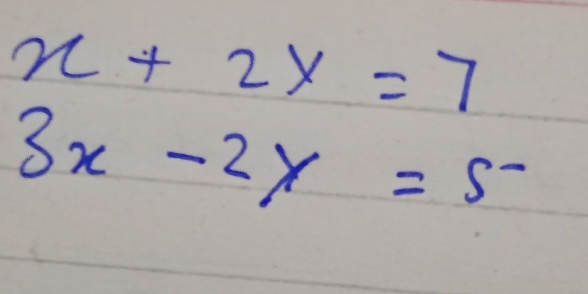 x + 2y = 7
3x - 2y = 5